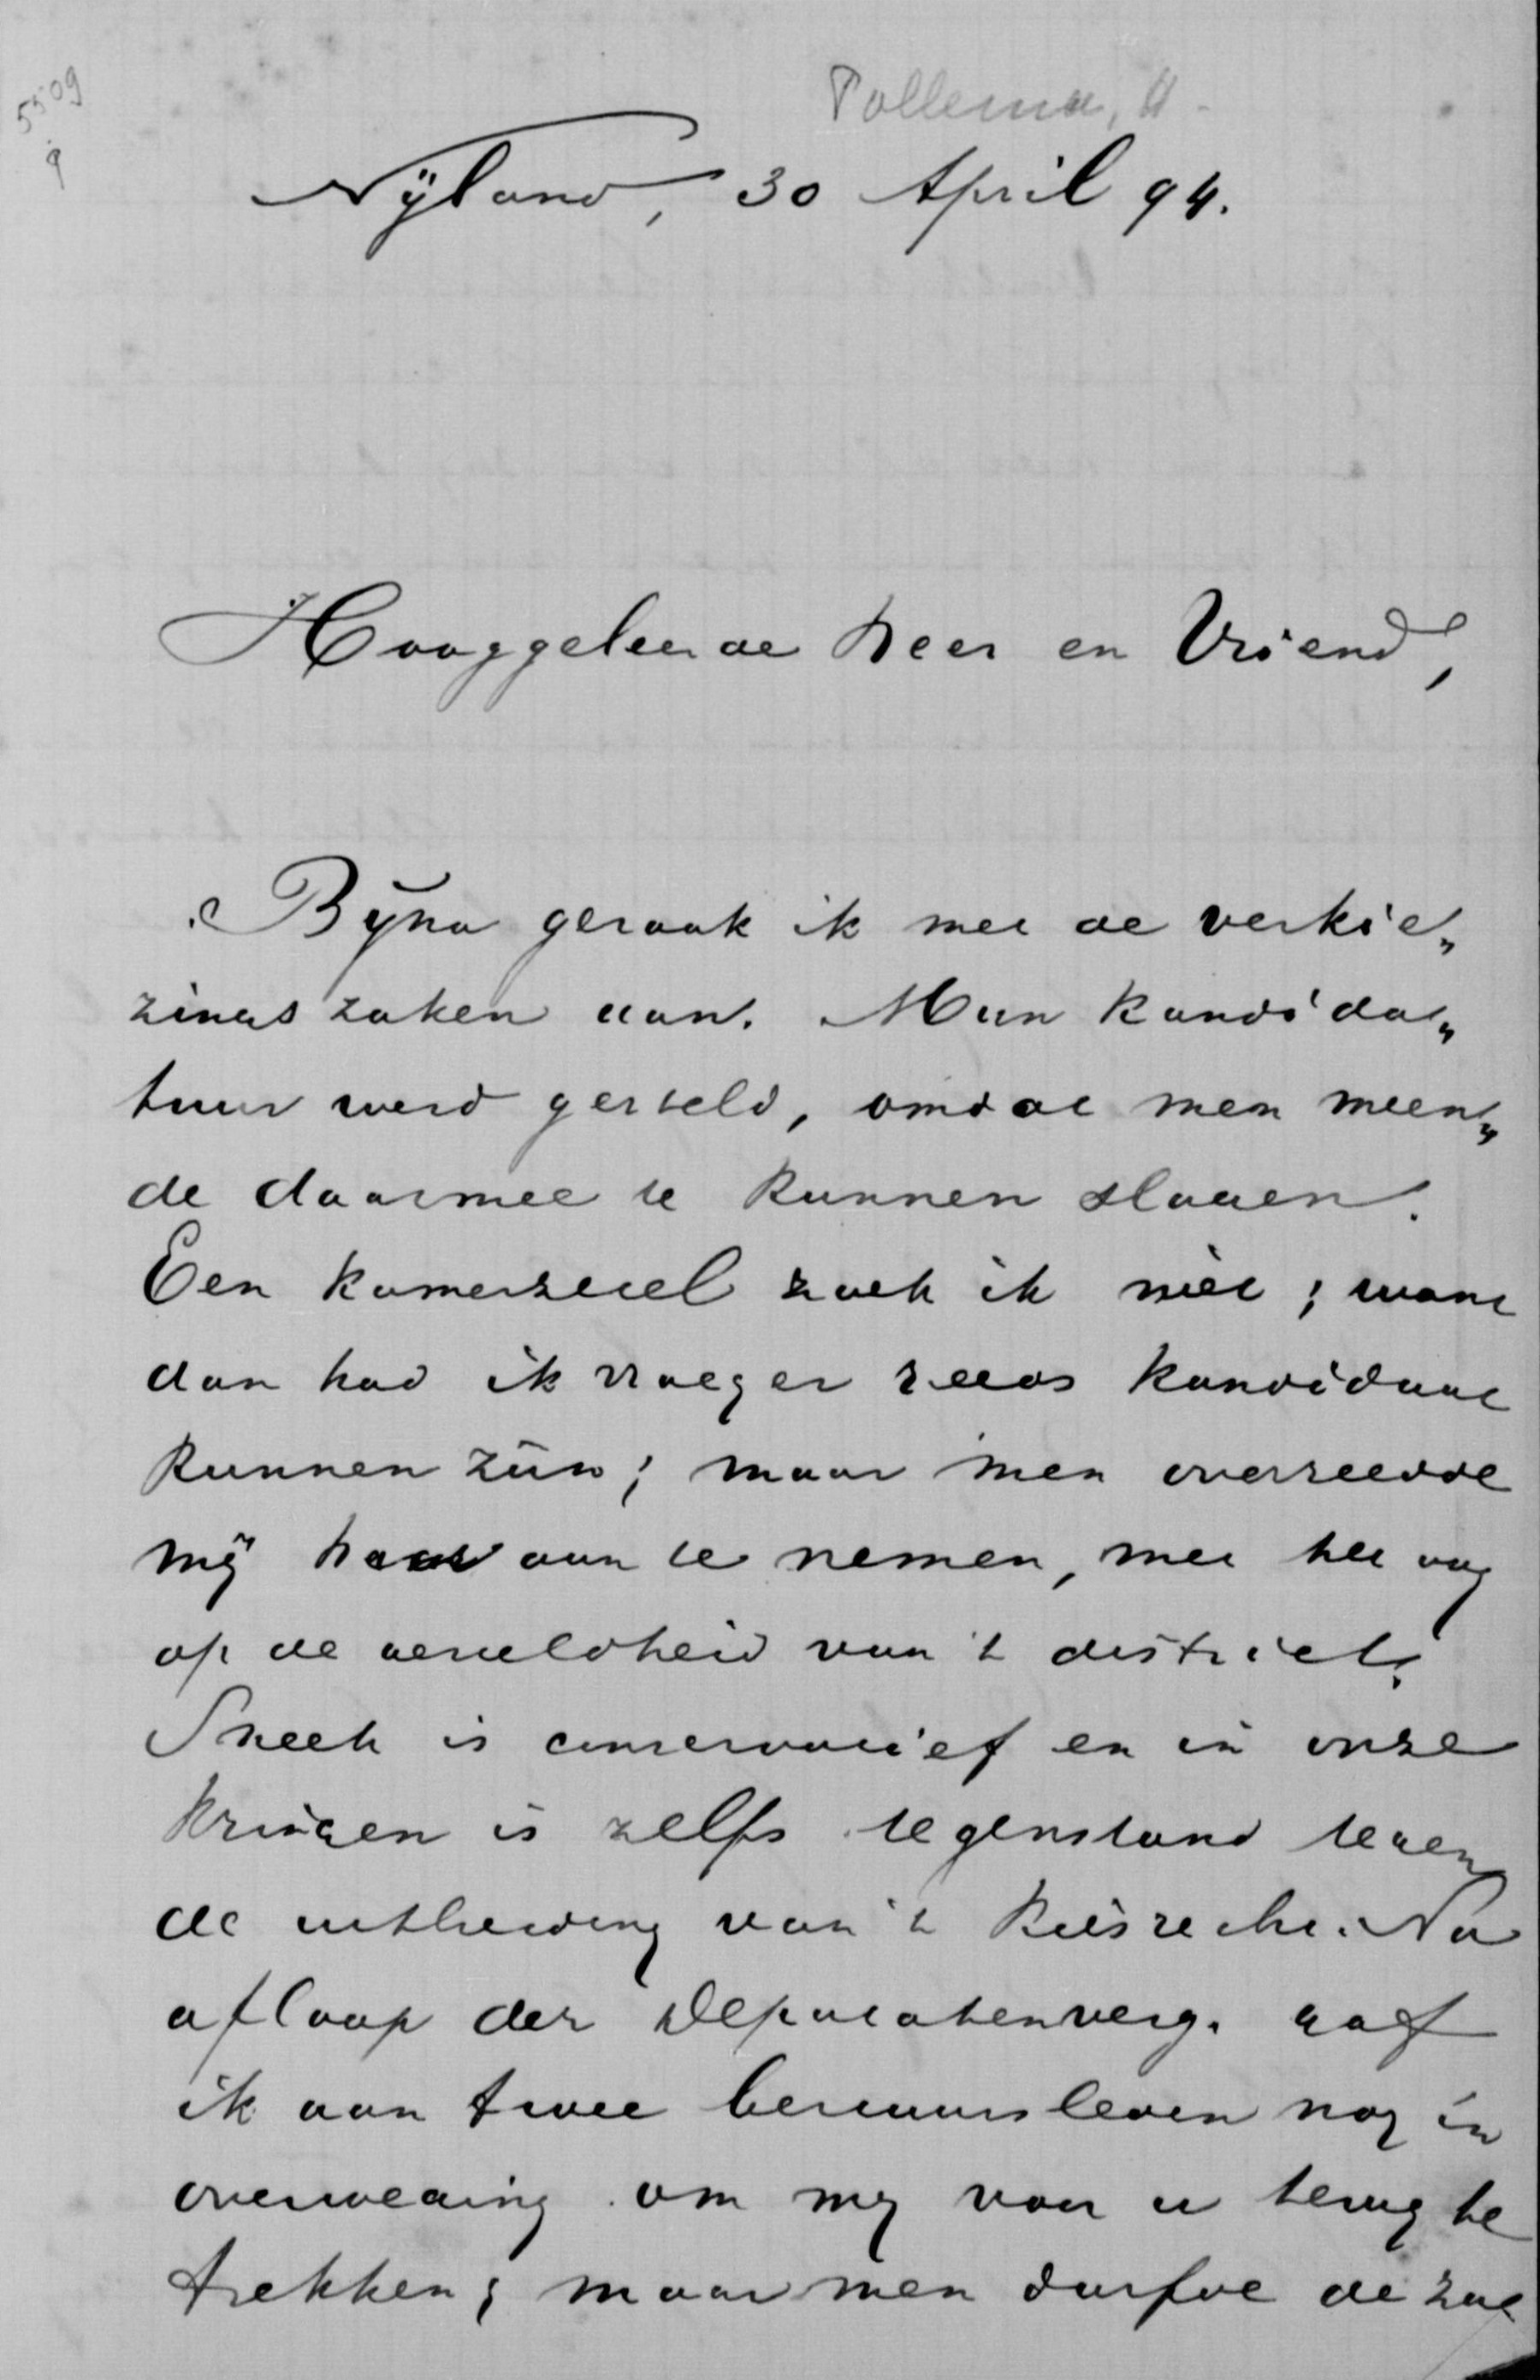 5509
Pollema, H.
Nijland, 30 April 94.
Hooggeleerde heer en Vriend,
Bijna geraak ik met de verkie„
zings zaken aan. Mijn kandida„
tuur werd gesteld, omdat men meen„
de daarmee te kunnen slagen.
Een kamerzetel zoek ik niet; want
dan had ik vroeger reeds kandidaat
kunnen zijn; maar men overreedde
mij haar aan te nemen, met het oog
op de gesteldheid van 't district.
Sneek is conservatief en in onze
kringen is zelfs tegenstand tegen
de uitbreiding van 't kiesrecht. Na
afloop der Deputatenverg. gaf
ik aan twee bestuursleden nog in
overweging om mij voor u terug te
trekken; maar men durfde de zaak